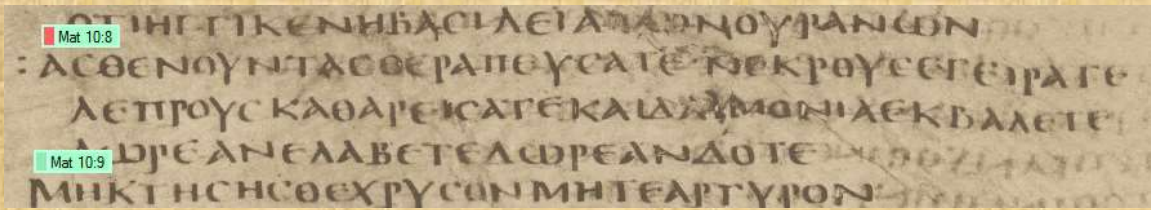 ΟΤΙΗΓΓΙΚΕΝΗΒΑCΙΛΕΙΑΤΩΝΟΥΡΑΝΩΝ
Mat 10:8
: ΑCΘΕΝΟΥΝΤΑCΘΕΡΑΠΕΥCΑΤΕ ΝΕΚΡΟΥCΕΓΕΙΡΑΤΕ
ΛΕΠΡΟΥCΚΑΘΑΡΕΙCΑΤΕΚΑΙΔΑΙΜΟΝΙΑΕΚΒΑΛΕΤΕ
ΔΩΡΕΑΝΕΛΑΒΕΤΕΔΩΡΕΑΝΔΟΤΕ
Mat 10:9
ΜΗΚΤΗCΗCΘΕΧΡΥCΟΝΜΗΤΕΑΡΓΥΡΟΝ